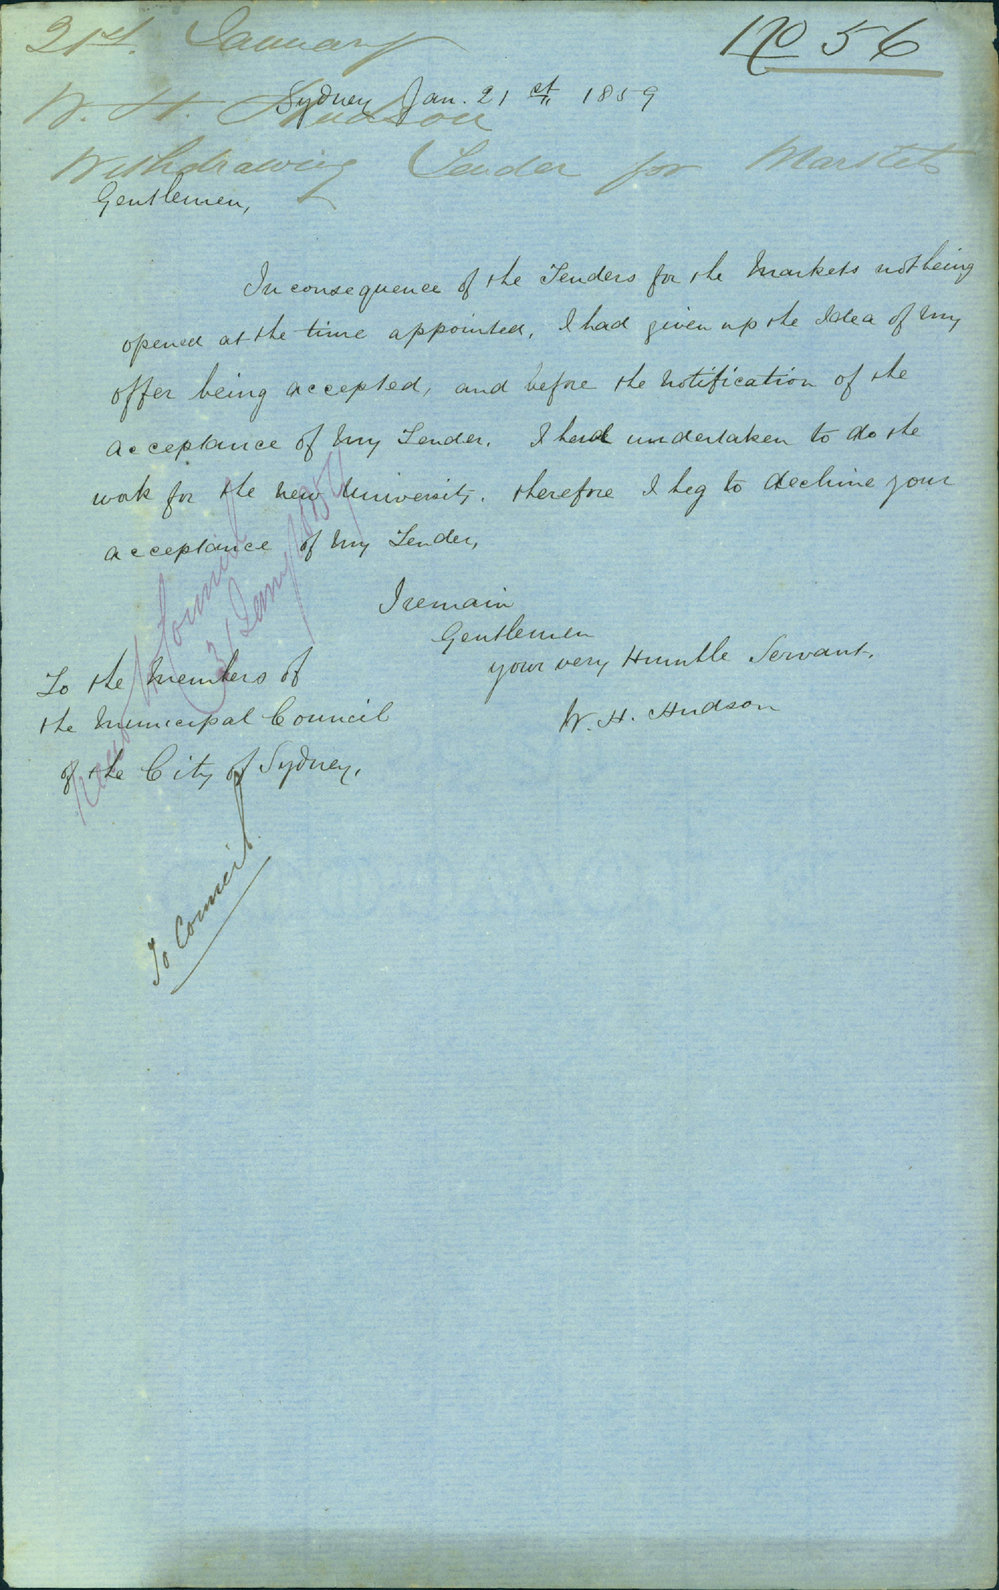 21st. January
No 56
W. H. Hudson
Sydney Jan. 21st 1859
Withdrawing Tender for Markets
Gentlemen,
In consequence of the Tenders for the Markets not being
opened at the time appointed, I had given up the Idea of my
offer being accepted, and before the notification of the
acceptance of my Tender. I had undertaken to do the
work for the new University. therefore I beg to decline your
acceptance of my Tender,
I remain
Gentlemen
your very Humble Servant,
W. H. Hudson
To the Members of
the Municipal Council
of the City of Sydney,
Council
31 Jany
To Council